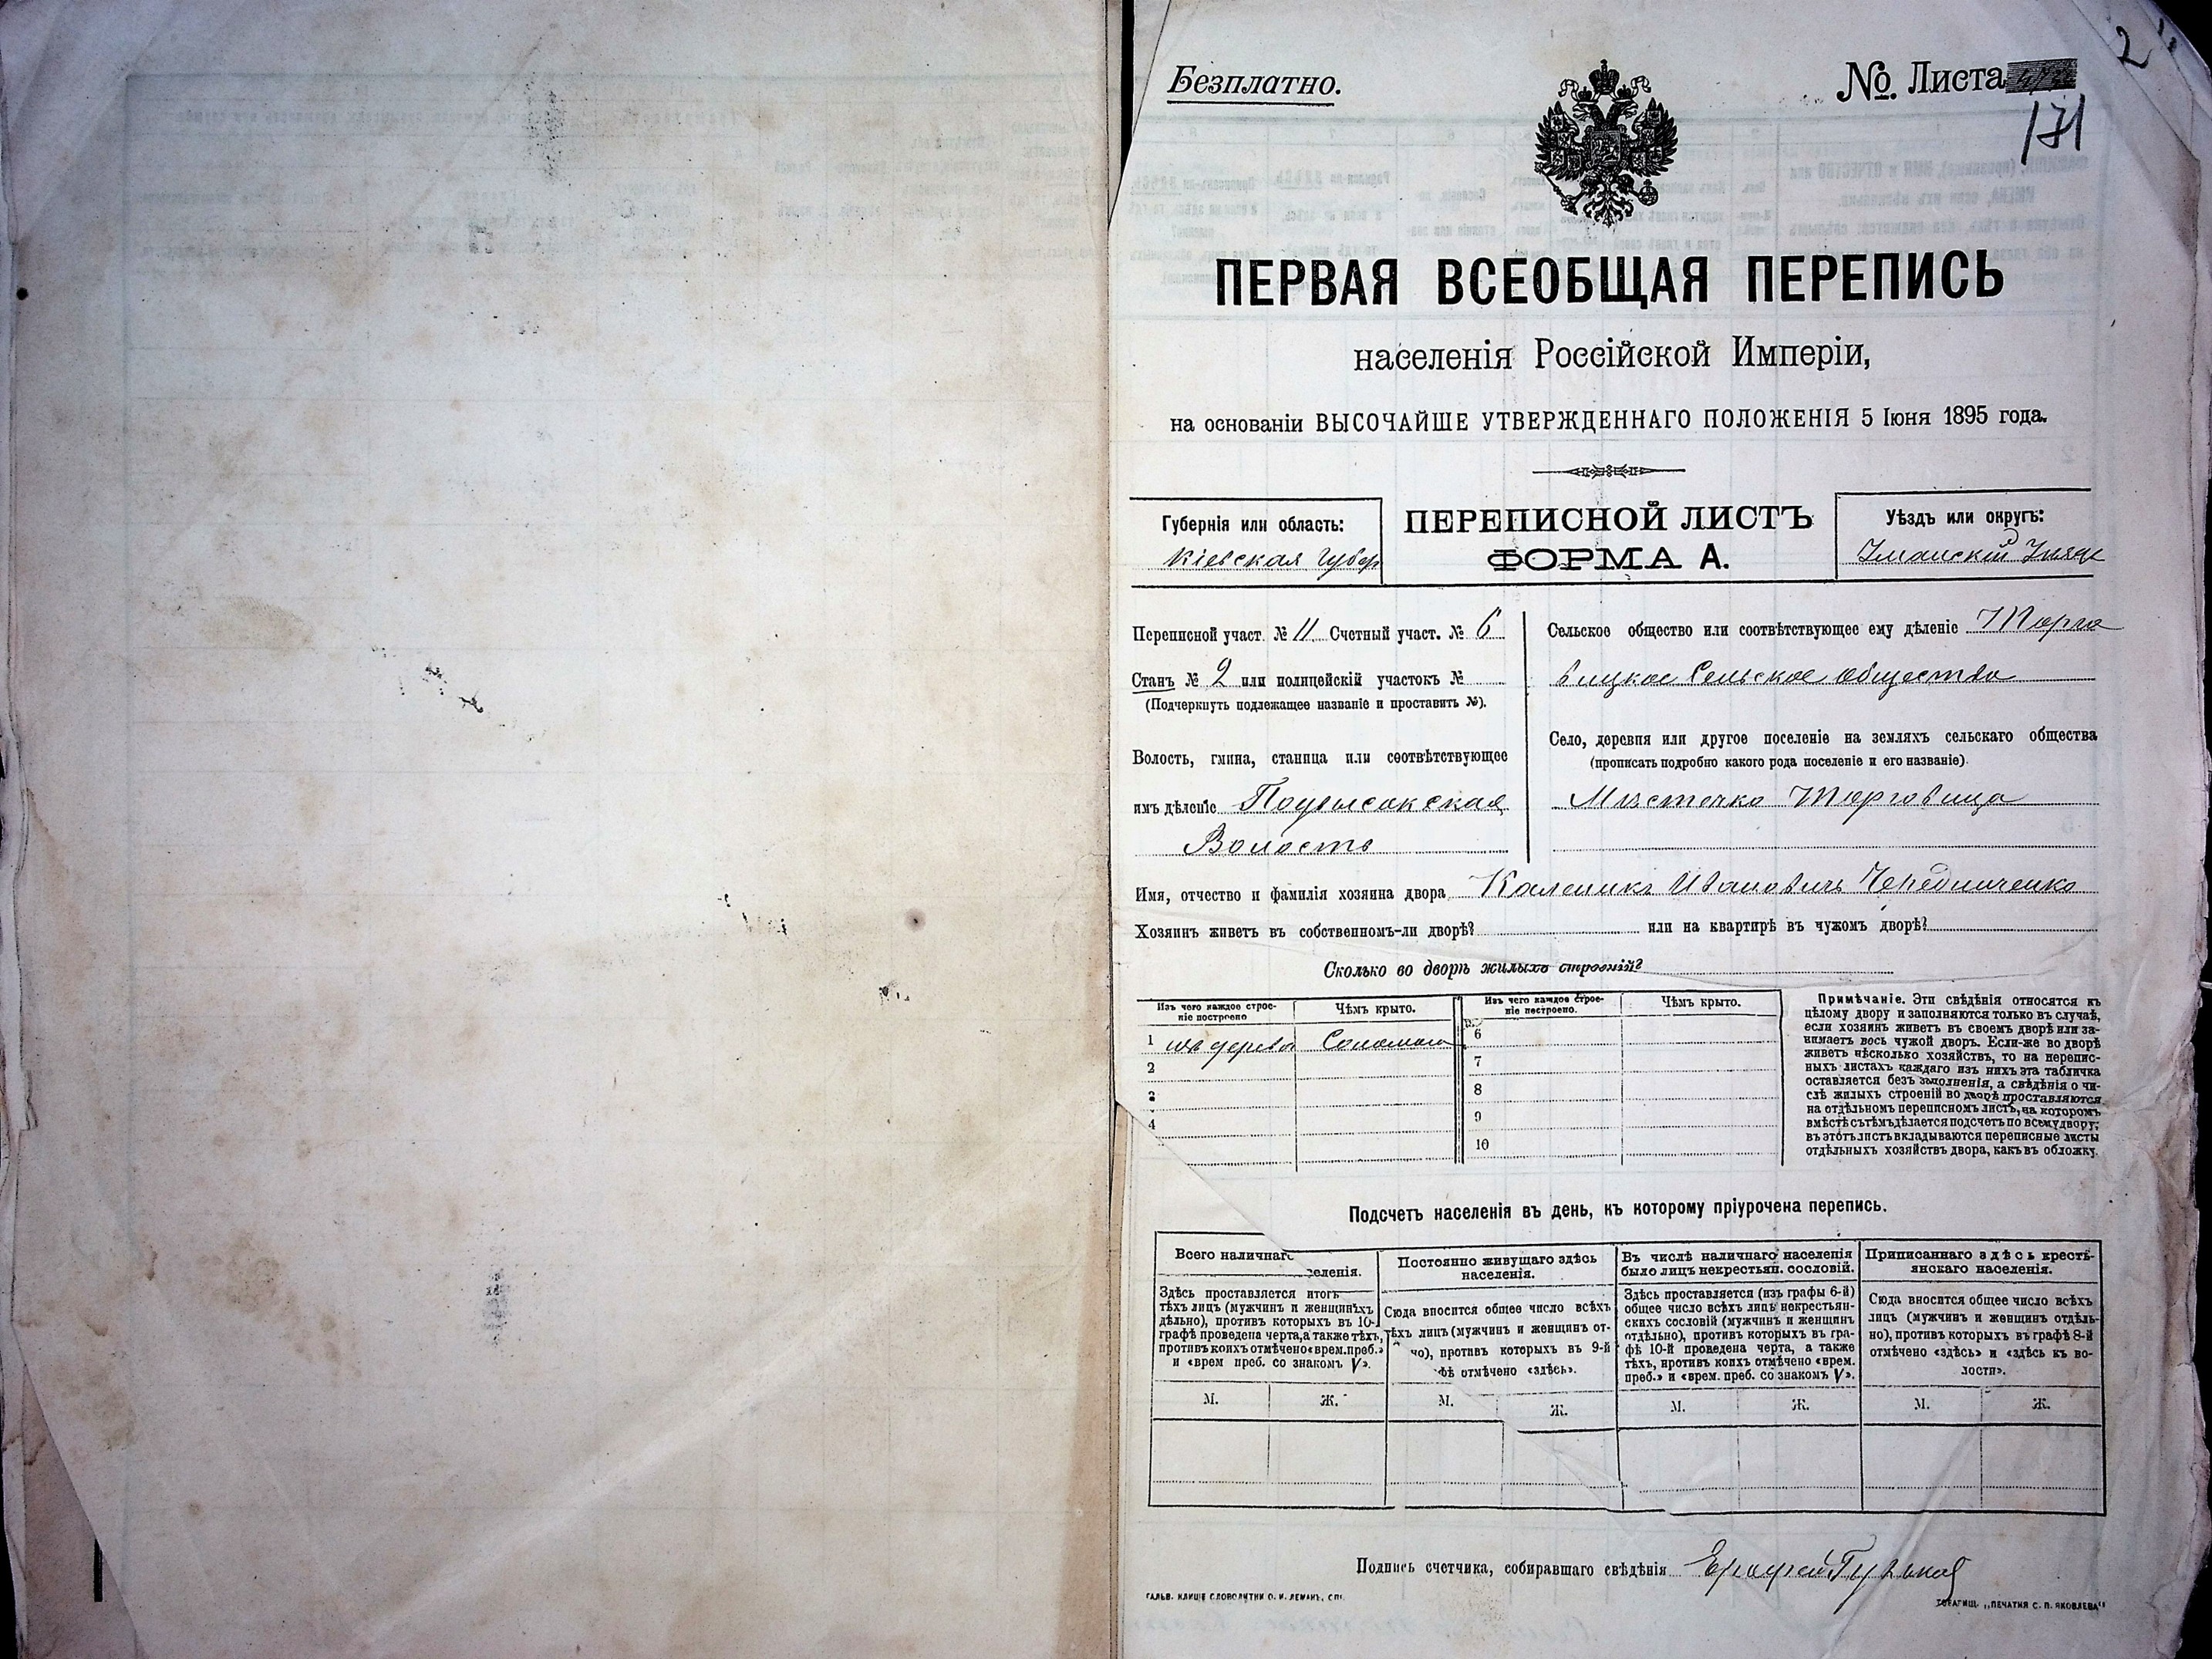 2
Безплатно.
№ Листа
171
ПЕРВАЯ ВСЕОБЩАЯ ПЕРЕПИСЬ
населенія Россійской Имперіи,
на основаніи ВЫСОЧАЙШЕ УТВЕРЖДЕННАГО ПОЛОЖЕНІЯ 5 Іюня 1895 года.
Губернія или область:
Кіевская Губер
ПЕРЕПИСНОЙ ЛИСТЪ
ФОРМА А.
Уѣздъ или округъ:
Уманскій
Переписной участ. № 11 Счетный участ. № 6
Станъ № 2 или полицейскій участокъ №
(Подчеркнуть подлежащее названіе и проставить №).
Волость, гмина, станица или соотвѣтствующее
имъ дѣленіе
Волость
Сельское общество или соотвѣтствующее ему дѣленіе Торго
вицкое Сельское общество
Село, деревня или другое поселеніе на земляхъ сельскаго общества
(прописать подробно какого рода поселеніе и его названіе).
Мѣстечко Торговица
Имя, отчество и фамилія хозяина двора Каленикъ Ивановичъ Чередниченко
Хозяинъ живетъ въ собственномъ-ли дворѣ? или на квартирѣ въ чужомъ дворѣ?
Сколько во дворѣ жилыхъ строеній?
Изъ чего каждое строе-
ніе построено
Чѣмъ крыто.
Изъ чего каждое строе-
ніе построено.
Чѣмъ крыто.
1 изъ дерева Соломою 6
2 7
3 8
4 9
10
Примѣчаніе. Эти свѣдѣнія относятся къ
цѣлому двору и заполняются только въ случаѣ,
если хозяинъ живетъ въ своемъ дворѣ или за-
нимаетъ весь чужой дворъ. Если-же во дворѣ
живетъ нѣсколько хозяйствъ, то на перепис-
ныхъ листахъ каждаго изъ нихъ эта табличка
оставляется безъ заполненія, а свѣдѣнія о чи-
слѣ жилыхъ строеній во дворѣ проставляются
на отдѣльномъ переписномъ листѣ, на которомъ
вмѣстѣ съ тѣмъ дѣлается подсчетъ по всему двору;
въ этотъ листъ вкладываются переписные листы
отдѣльныхъ хозяйствъ двора, какъ въ обложку.
Подсчетъ населенія въ день, къ которому пріурочена перепись.
Всего наличнаг
селенія.
Здѣсь проставляется итогъ
тѣхъ лицъ (мужчинъ и женщинъ
дѣльно), противъ которыхъ въ 10-
графѣ проведена черта, а также тѣхъ,
противъ коихъ отмѣчено «врем. преб.»
и «врем преб. со знакомъ V».
Постоянно живущаго здѣсь
населенія.
Сюда вносится общее число всѣхъ
тѣхъ лицъ (мужчинъ и женщинъ от-
но), противъ которыхъ въ 9-й
фѣ отмѣчено «здѣсь».
Въ числѣ наличнаго населенія
было лицъ некрестьян. сословій.
Здѣсь проставляется (изъ графы 6-й)
общее число всѣхъ лицъ некрестьян-
скихъ сословій (мужчинъ и женщинъ
отдѣльно), противъ которыхъ въ гра-
фѣ 10-й проведена черта, а также
тѣхъ, противъ коихъ отмѣчено «врем.
преб.» и «врем. преб. со знакомъ V».
Приписаннаго здѣсь кресть-
янскаго населенія.
Сюда вносится общее число всѣхъ
лицъ (мужчинъ и женщинъ отдѣль-
но), противъ которыхъ въ графѣ 8-й
отмѣчено «здѣсь» и «здѣсь къ во-
лости».
М. Ж. М. Ж. М. Ж. М. Ж.
Подпись счетчика, собиравшаго свѣдѣнія
ГАЛЬВ. КЛИШЕ СЛОВОЛИТНИ О. И. ЛЕМАНЪ, СПБ.
ТОВАРИЩ. „ПЕЧАТНЯ С. П. ЯКОВЛЕВА"